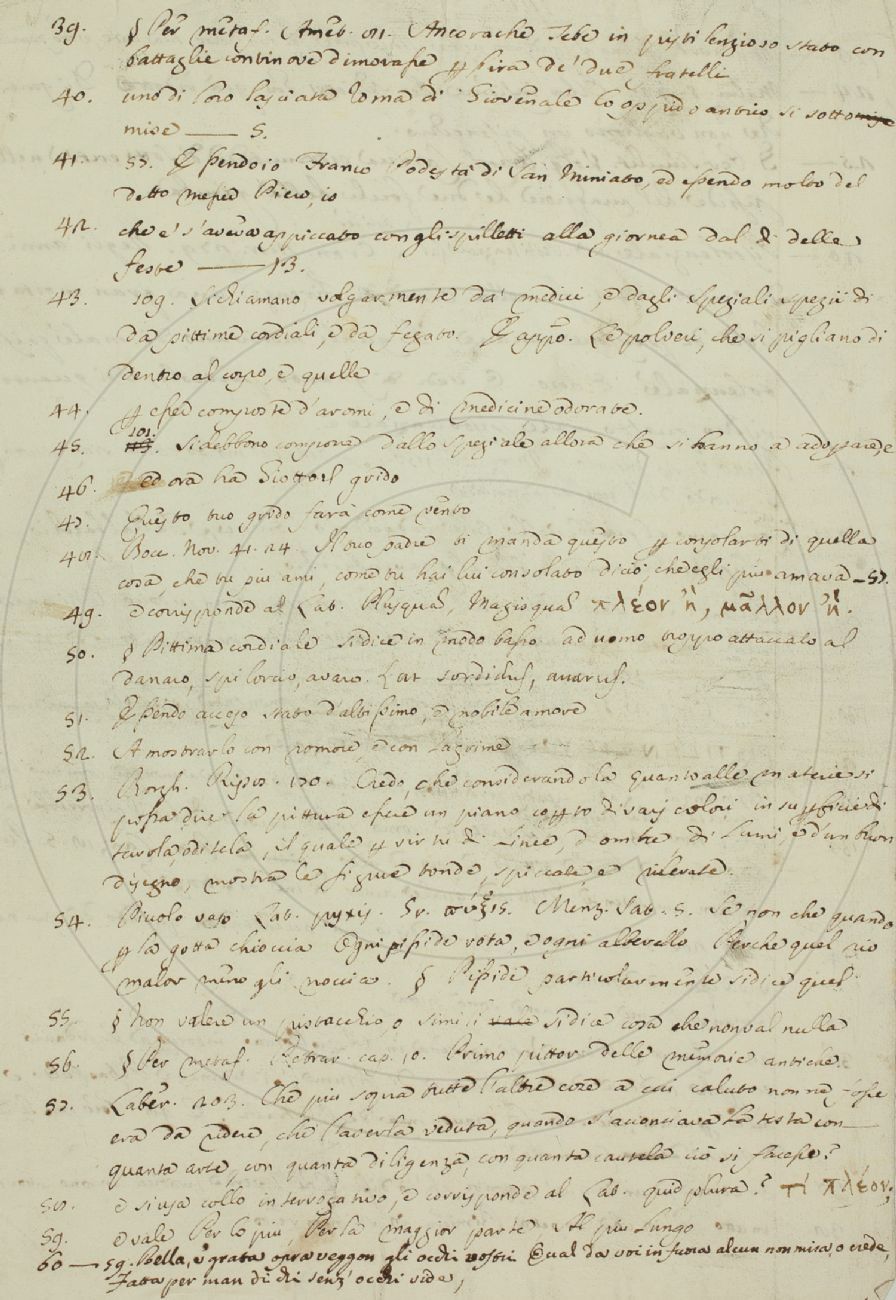 39. § Per metaf. Amet. 81. Ancorachè Tebe in pistilenzioso stato con
battaglie continove dimorasse p l'ira de' due fratelli
40. uno di loro lasciata Roma di Giovenale lo oppido antico si sotto
mise —— 5.
41. 55. Essendo io Franco Podestà di San Miniato, ed essendo molto del
detto messer Piero, io
42. che e' s'aveva appiccato con gli spilletti alla giornea dal dì delle
feste —— 13.
43. 109. Si chiamano volgarmente da' medici, e dagli speziali spezii di
da pittime cordiali, e da fegato. E appo. Le polveri, che si pigliano di
dentro al corpo, e quelle
44. p esser composte d'aromi, e di medicine odorate.
45. 101. Si debbono comporre dallo speziale allora che si hanno a adoparare
46. ed ora ha Giotto il grido
47. Questo tuo grido farà come vento
48. Bocc. Nov. 41. 24. Il tuo padre ti manda questo p consolarti di quella
cosa, che tu più ami, come tu hai lui consolato di ciò, che egli più amava – 57.
49. e corrisponde al Lat. Plusquam, Magisquam πλέον ἢ, μᾶλλον ἢ.
50. § Pittima cordiale si dice in modo basso ad uomo troppo attaccato al
danaro, spilorcio, avaro. Lat sordidus, avarus.
51. Essendo acceso stato d'altissimo, e nobile amore
52. A mostrarlo con romore, e con lagrime
53. Borgh. Ripos. 170. Credo, che considerandola quanto alle materie si
possa dire la pittura essere un piano copto di varj colori in supficie di
tavola, o di tela, il quale p virtù di linee, d'ombre, di lumi, e d'un buon
disegno, mostra le figure tonde, spiccate, e rilevate.
54. Piccolo vaso Lat. pyxis. Gr. πύξις. Menz. Sat. 5. Se non che quando
p la gotta chioccia Ogni pisside vota, e ogni alberello Perchè quel rio
malor meno gli noccia. § Pisside particolarmente si dice quel
55. § Non valere un pistacchio o simili vale si dice cosa che non val nulla
56. § Per metaf. Petrar. cap. 10. Primo pittor delle memorie antiche
57. Laber. 203. Che più sopra tutte l'altre cose a cui caluto non ne fosse
era da ridere, che l'averla veduta, quando s'acconciava la testa con
quanta arte, con quanta diligenza, con quanta cautela ciò si facesse?
58. e si usa collo interrogativo, e corrisponde al Lat. quid plura? τί πλέον;
59. e vale Per lo più, Per la maggior parte Al più lungo
60 — 59. Bella, e grata opra veggon gli occhi vostri Qual da voi in fuora alcun non mira, o crede,
Fatta per man di chi senz'occhi vide,